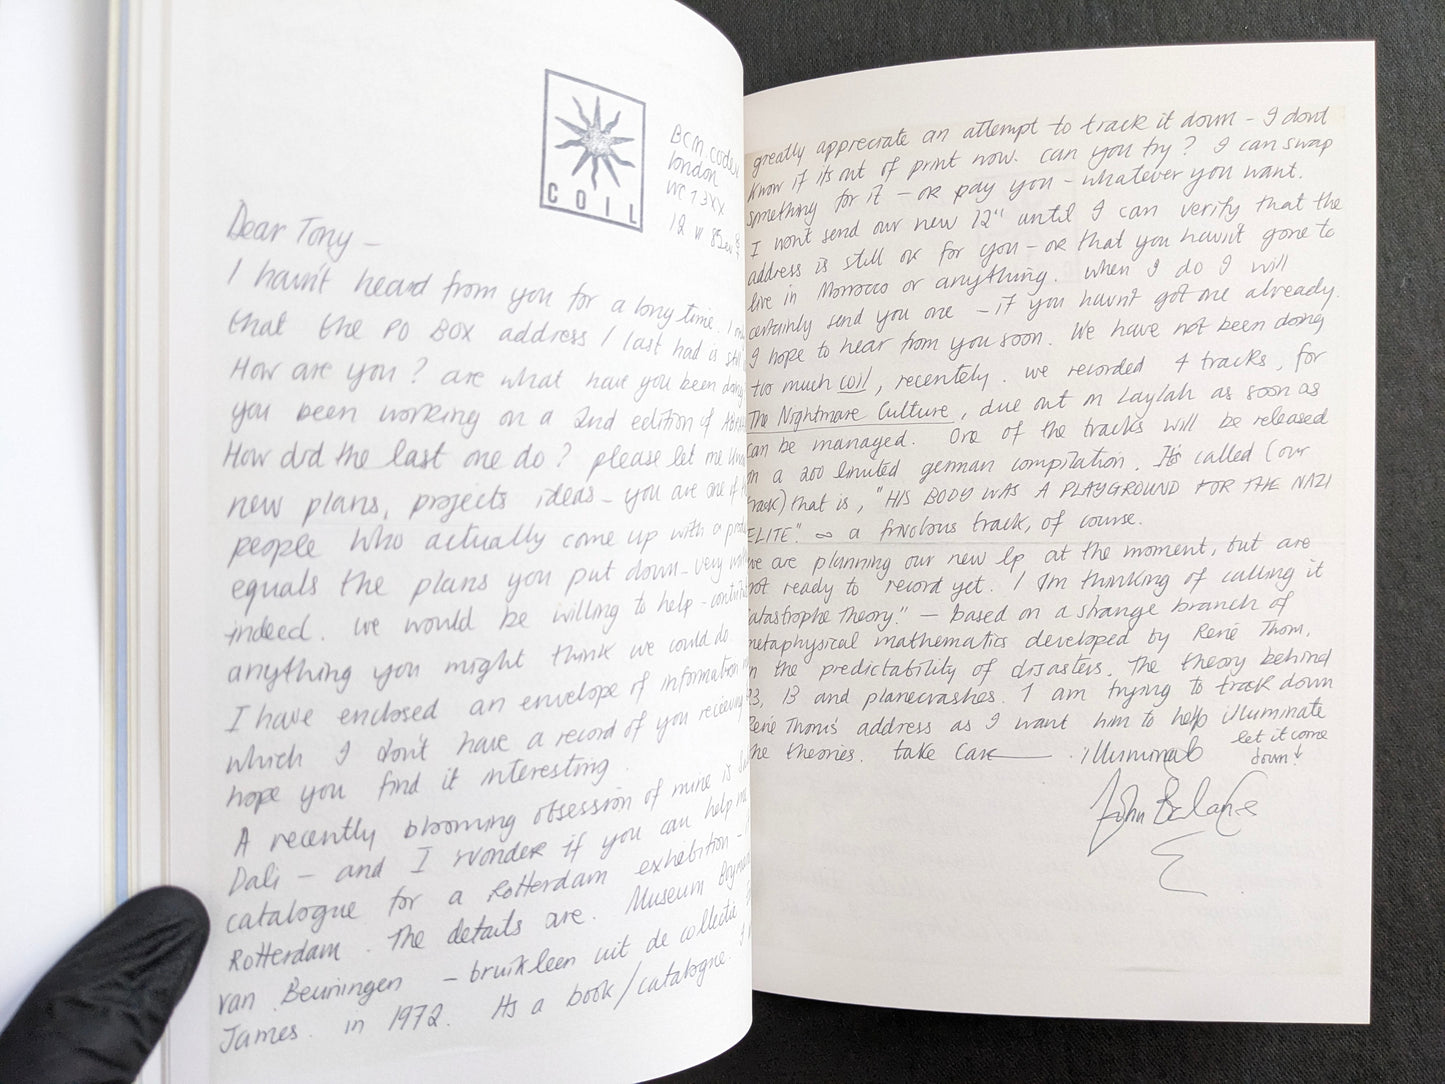 COIL
BCM Codex
London
WC1 3XX
Dear Tony –
I havn't heard from you for a long time. I
that the PO BOX address I last had is still
How are you? are what have you been doing
you been working on a 2nd edition of
How did the last one do? please let me know
new plans, projects ideas – you are one of the
people who actually come up with a
equals the plans you put down – very
indeed. We would be willing to help –
anything you might think we could do.
I have enclosed an envelope of information
which I don't have a record of you recieving
hope you find it interesting.
A recently blooming obsession of mine is
Dali – and I wonder if you can help me
catalogue for a Rotterdam exhibition –
Rotterdam. The details are. Museum
van Beuningen – bruikleen uit de collectie
James. in 1972. Its a book/catalogue.
greatly appreciate an attempt to track it down – I dont
know if its out of print now. Can you try? I can swap
something for it – or pay you – whatever you want.
I won't send our new 12" until I can verify that the
address is still ok for you – or that you havn't gone to
live in Morroco or anything. When I do I will
certainly send you one – if you havnt got one already.
I hope to hear from you soon. We have not been doing
too much coil, recentely. We recorded 4 tracks, for
The Nightmare Culture, due out on Laylah as soon as
can be managed. One of the tracks will be released
on a 200 limited german compilation. It's called (our
track) that is, "HIS BODY WAS A PLAYGROUND FOR THE NAZI
ELITE". ∞ a frivolous track, of course.
we are planning our new lp at the moment, but are
not ready to record yet. I Im thinking of calling it
atastrophe Theory." – based on a strange branch of
metaphysical mathematics developed by René Thom,
in the predictability of disasters. The theory behind
23, 13 and planecrashes. I am trying to track down
René Thom's address as I want him to help illuminate
the theories. take care —— illuminab
let it come
down↓
John Balance